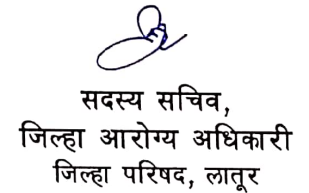 सदस्य सचिव,
जिल्हा आरोग्य अधिकारी
जिल्हा परिषद, लातूर